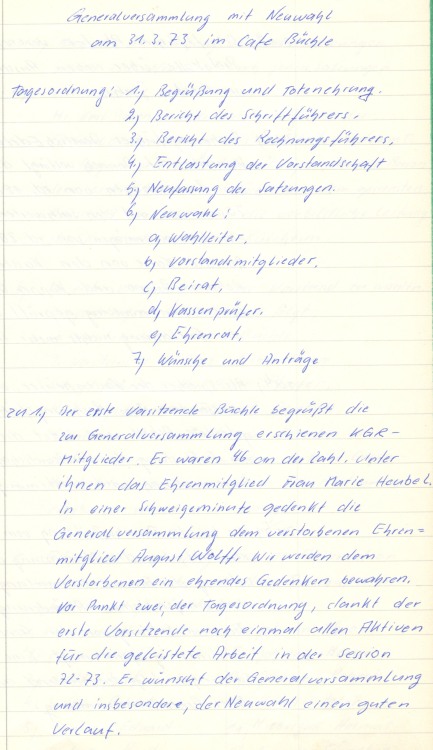 Generalversammlung mit Neuwahl
am 31.3.73 im Cafe Büchle
Tagesordnung: 1, Begrüßung und Totenehrung.
2, Bericht des Schriftführers.
3, Bericht des Rechnungsführers.
4, Entlastung der Vorstandschaft
5, Neufassung der Satzungen.
6, Neuwahl:
a, Wahlleiter,
b, Vorstandsmitglieder,
c, Beirat,
d, Kassenprüfer,
e, Ehrenrat,
7, Wünsche und Anträge
zu 1, Der erste Vorsitzende Büchle begrüßt die
zur Generalversammlung erschienen KGR-
Mitglieder. Es waren 46 an der Zahl. Unter
ihnen das Ehrenmitglied Frau Marie Heubel.
In einer Schweigeminute gedenkt die
Generalversammlung dem verstorbenen Ehren=
mitglied August Wolff. Wir werden dem
Verstorbenen ein ehrendes Gedenken bewahren.
Vor Punkt zwei, der Tagesordnung, dankt der
erste Vorsitzende noch einmal allen Aktiven
für die geleistete Arbeit in der Session
72-73. Er wünscht der Generalversammlung
und insbesondere, der Neuwahl einen guten
Verlauf.